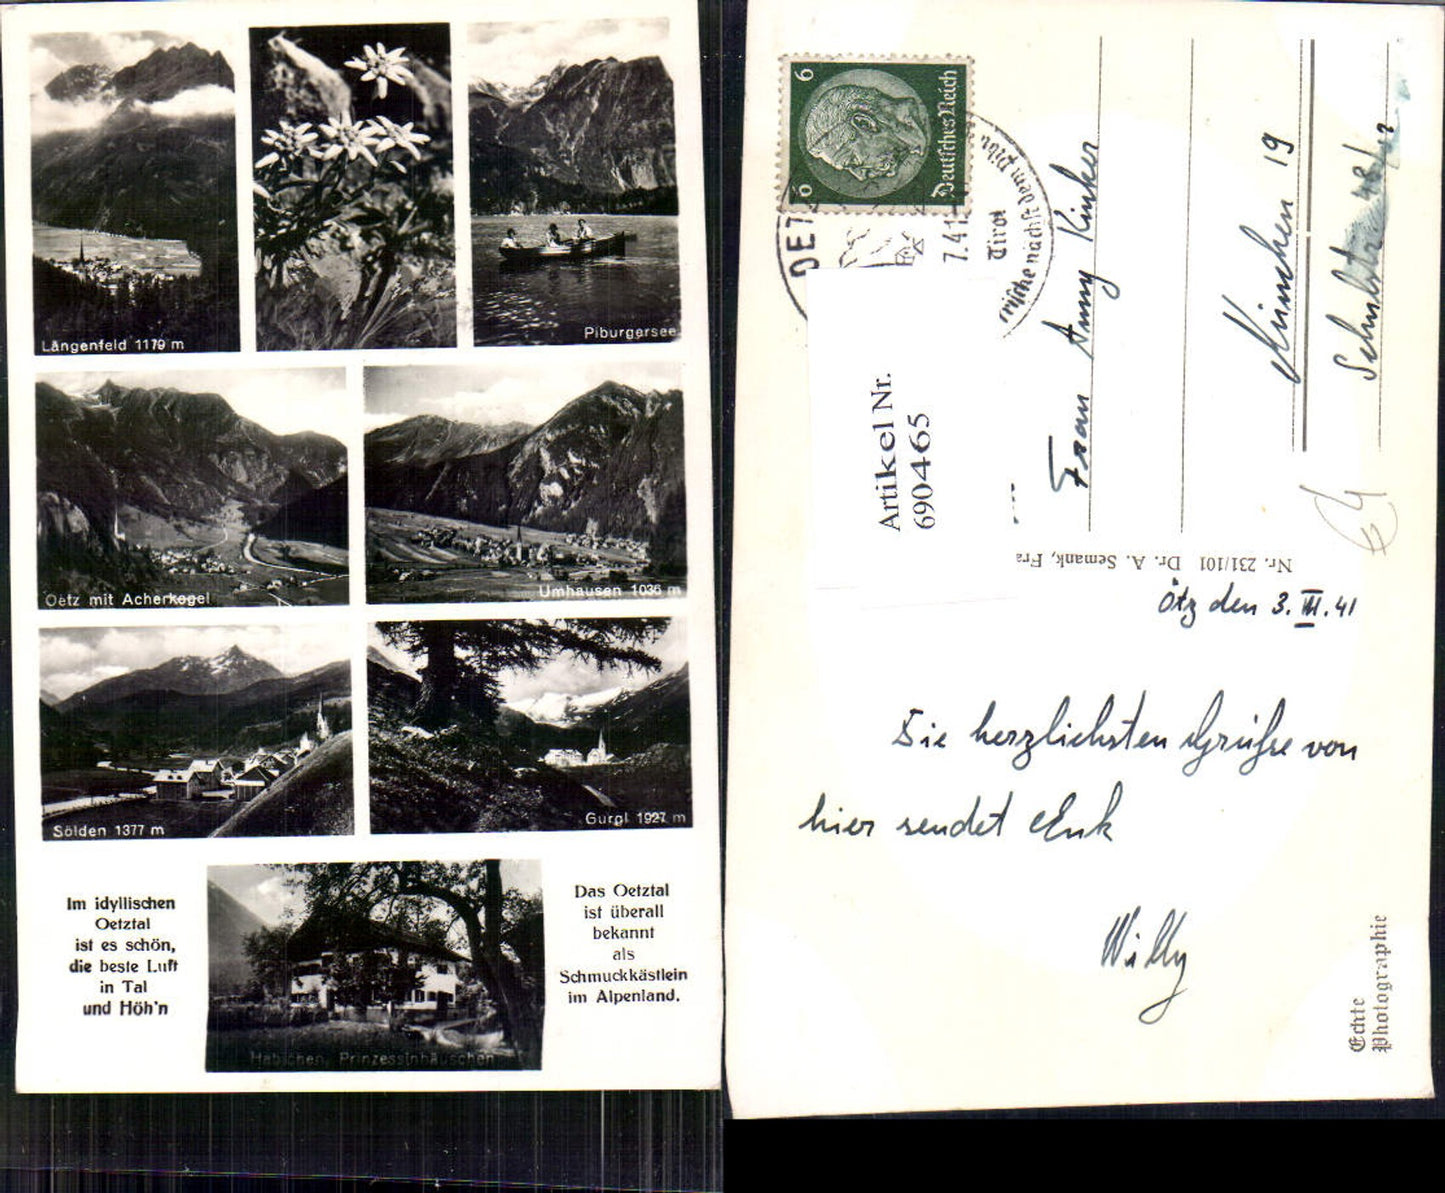 Längenfeld 1179 m
Piburgersee
Oetz mit Acherkogel
Umhausen 1036 m
Sölden 1377 m
Gurgl 1927 m
Im idyllischen
Oetztal
ist es schön,
die beste Luft
in Tal
und Höh'n
Habichen, Prinzessinhäuschen
Das Oetztal
ist überall
bekannt
als
Schmuckkästlein
im Alpenland.
6 6
Deutsches Reich
OETZ
7.41
Tirol
Artikel Nr.
690465
Frau Anny
München 19
Nr. 231/101 Dr. A. Semank, Fra
Ötz den 3. VII. 41
Die herzlichsten Grüße von
hier sendet Euch
Willy
Echte
Photographie